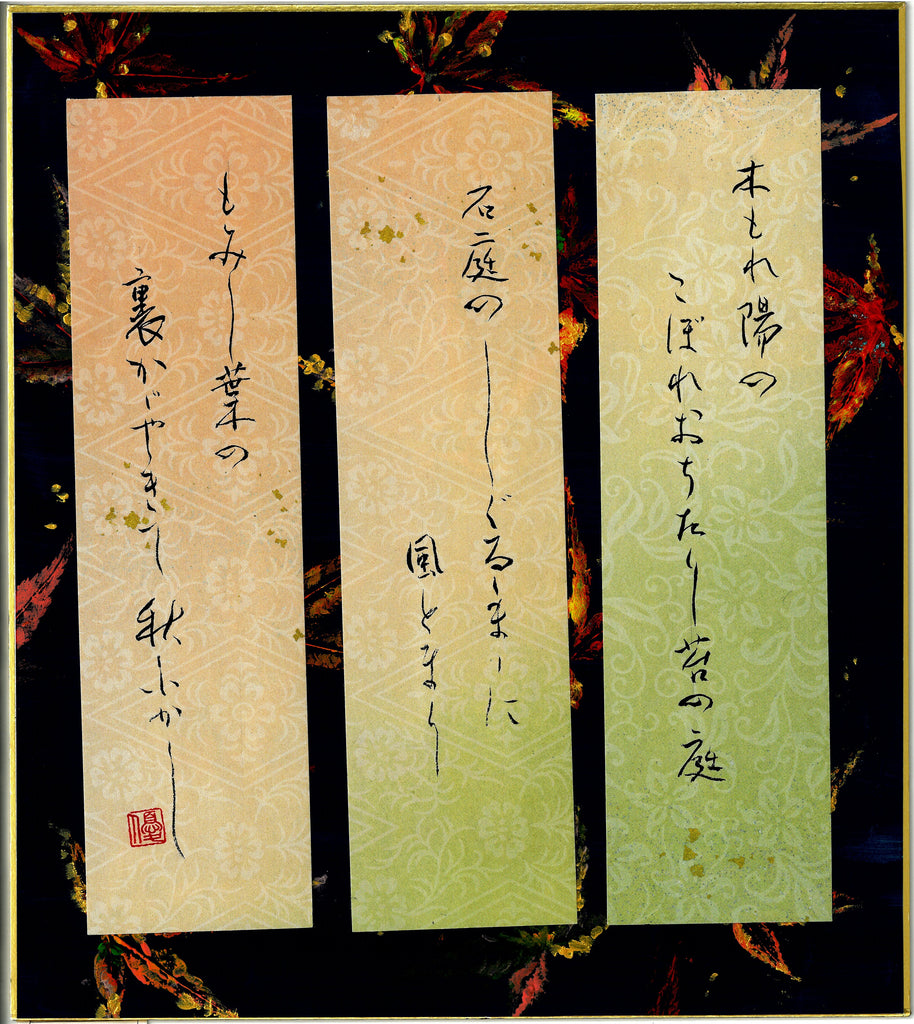 木もれ陽の
こぼれおちたり苔の庭
石庭の しぐるゝまゝに
風とまり
もみし葉の
裏かゞやきて 秋ふかし
優